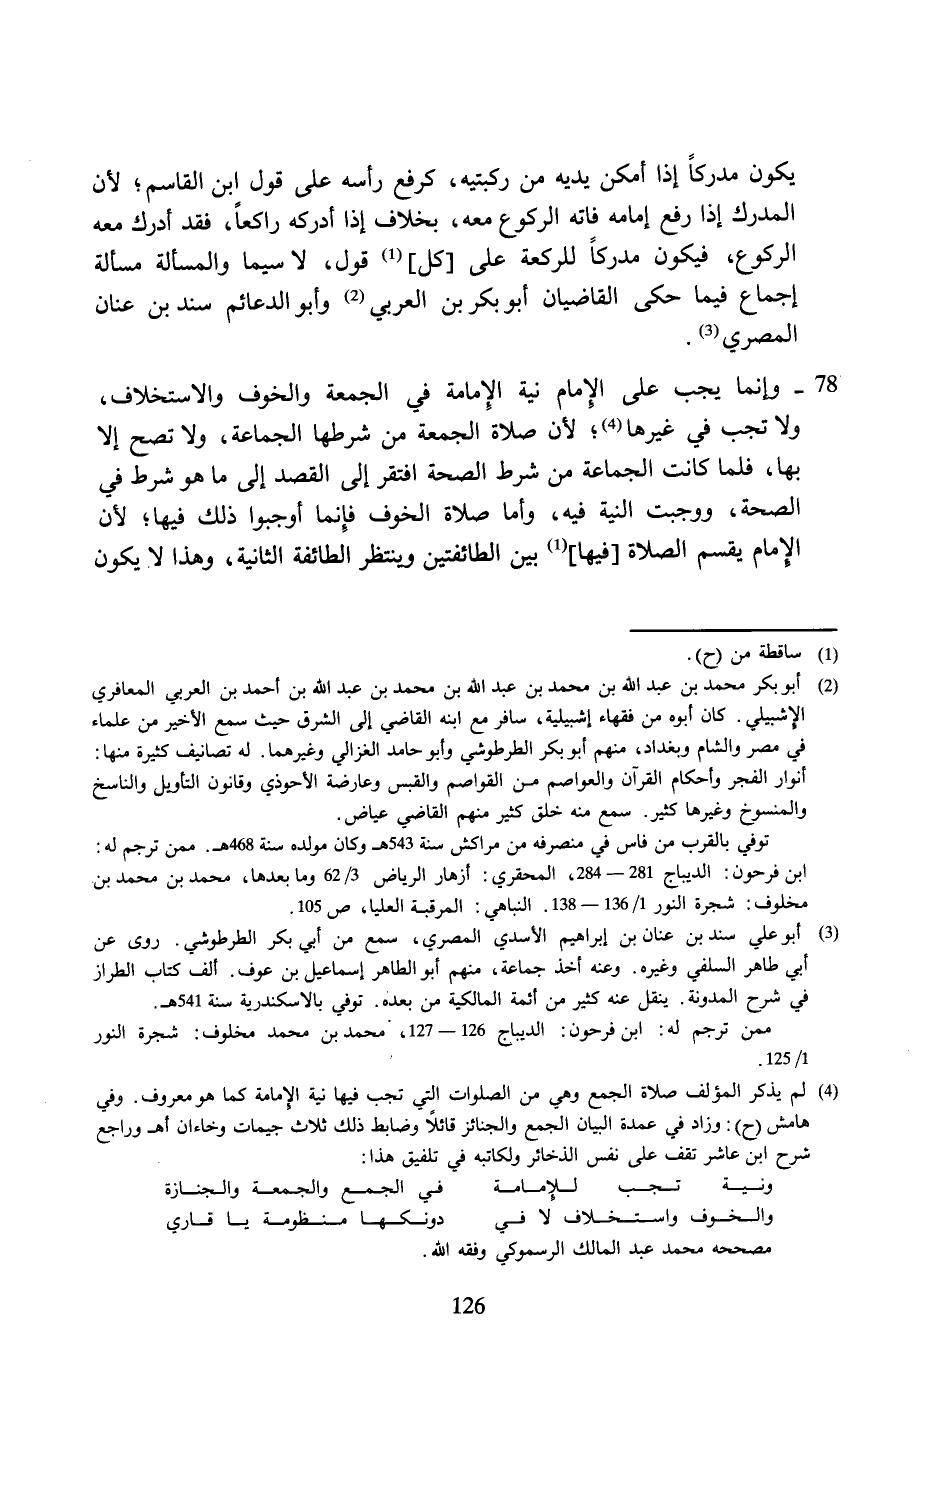 يكون مدركاً إذا أمكن يديه من ركبتيه، كرفع رأسه على قول ابن القاسم؛ لأن
المدرك إذا رفع إمامه فاته الركوع معه، بخلاف إذا أدركه راكعاً، فقد أدرك معه
الركوع، فيكون مدركاً للركعة على [كل](1) قول، لا سيما والمسألة مسألة
إجماع فيما حكى القاضيان أبو بكر بن العربي(2) وأبو الدعائم سند بن عنان
المصري(3).
78 ـ وإنما يجب على الإمام نية الإمامة في الجمعة والخوف والاستخلاف،
ولا تجب في غيرها(4)؛ لأن صلاة الجمعة من شرطها الجماعة، ولا تصح إلا
بها، فلما كانت الجماعة من شرط الصحة افتقر إلى القصد إلى ما هو شرط في
الصحة، ووجبت النية فيه، وأما صلاة الخوف فإنما أوجبوا ذلك فيها؛ لأن
الإمام يقسم الصلاة [فيها](1) بين الطائفتين وينتظر الطائفة الثانية، وهذا لا يكون
(1) ساقطة من (ح).
(2) أبو بكر محمد بن عبد الله بن محمد بن عبد الله بن محمد بن عبد الله بن أحمد بن العربي المعافري
الإشبيلي. كان أبوه من فقهاء إشبيلية، سافر مع ابنه القاضي إلى الشرق حيث سمع الأخير من علماء
في مصر والشام وبغداد، منهم أبو بكر الطرطوشي وأبو حامد الغزالي وغيرهما. له تصانيف كثيرة منها:
أنوار الفجر وأحكام القرآن والعواصم من القواصم والقبس وعارضة الأحوذي وقانون التأويل والناسخ
والمنسوخ وغيرها كثير. سمع منه خلق كثير منهم القاضي عياض.
توفي بالقرب من فاس في منصرفه من مراكش سنة 543هـ وكان مولده سنة 468هـ. ممن ترجم له:
ابن فرحون: الديباج 281 — 284، المحقري: أزهار الرياض 3/ 62 وما بعدها، محمد بن محمد بن
مخلوف: شجرة النور 1/ 136 — 138. النباهي: المرقبة العليا، ص 105.
(3) أبو علي سند بن عنان بن إبراهيم الأسدي المصري، سمع من أبي بكر الطرطوشي. روى عن
أبي طاهر السلفي وغيره. وعنه أخذ جماعة، منهم أبو الطاهر إسماعيل بن عوف. ألف كتاب الطراز
في شرح المدونة. ينقل عنه كثير من أئمة المالكية من بعده. توفي بالاسكندرية سنة 541هـ.
ممن ترجم له: ابن فرحون: الديباج 126 — 127، محمد بن محمد مخلوف: شجرة النور
1/ 125.
(4) لم يذكر المؤلف صلاة الجمع وهي من الصلوات التي تجب فيها نية الإمامة كما هو معروف. وفي
هامش (ح): وزاد في عمدة البيان الجمع والجنائز قائلاً وضابط ذلك ثلاث جيمات وخاءان أهـ وراجع
شرح ابن عاشر تقف على نفس الذخائر ولكاتبه في تلفيق هذا:
ونية تجب للإمامة في الجمع والجمعة والجنازة
والخوف واستخلاف لا في دونكها منظومة يا قاري
مصححه محمد عبد المالك الرسموكي وفقه الله.
126